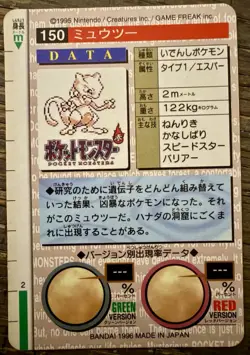 ©1995 Nintendo / Creatures inc. / GAME FREAK inc.
しんちょう
身長
m
150 ミュウツー
DATA
種類 いでんしポケモン
属性 タイプ1/エスパー
高さ 2mメートル
重さ 122kgキログラム
主な技 ねんりき
かなしばり
スピードスター
バリアー
ポケットモンスター
POCKET MONSTERS
◆研究のために遺伝子をどんどん組み替えて
いった結果、凶暴なポケモンになった。そ
れがこのミュウツーだ。ハナダの洞窟にごくま
れに出現することがある。
◆バージョン別出現率データ◆
-- %
パーセント
-- %
パーセント
GREEN
VERSION
グリーンバージョン
RED
VERSION
レッドバージョン
2
BANDAI 1996 MADE IN JAPAN